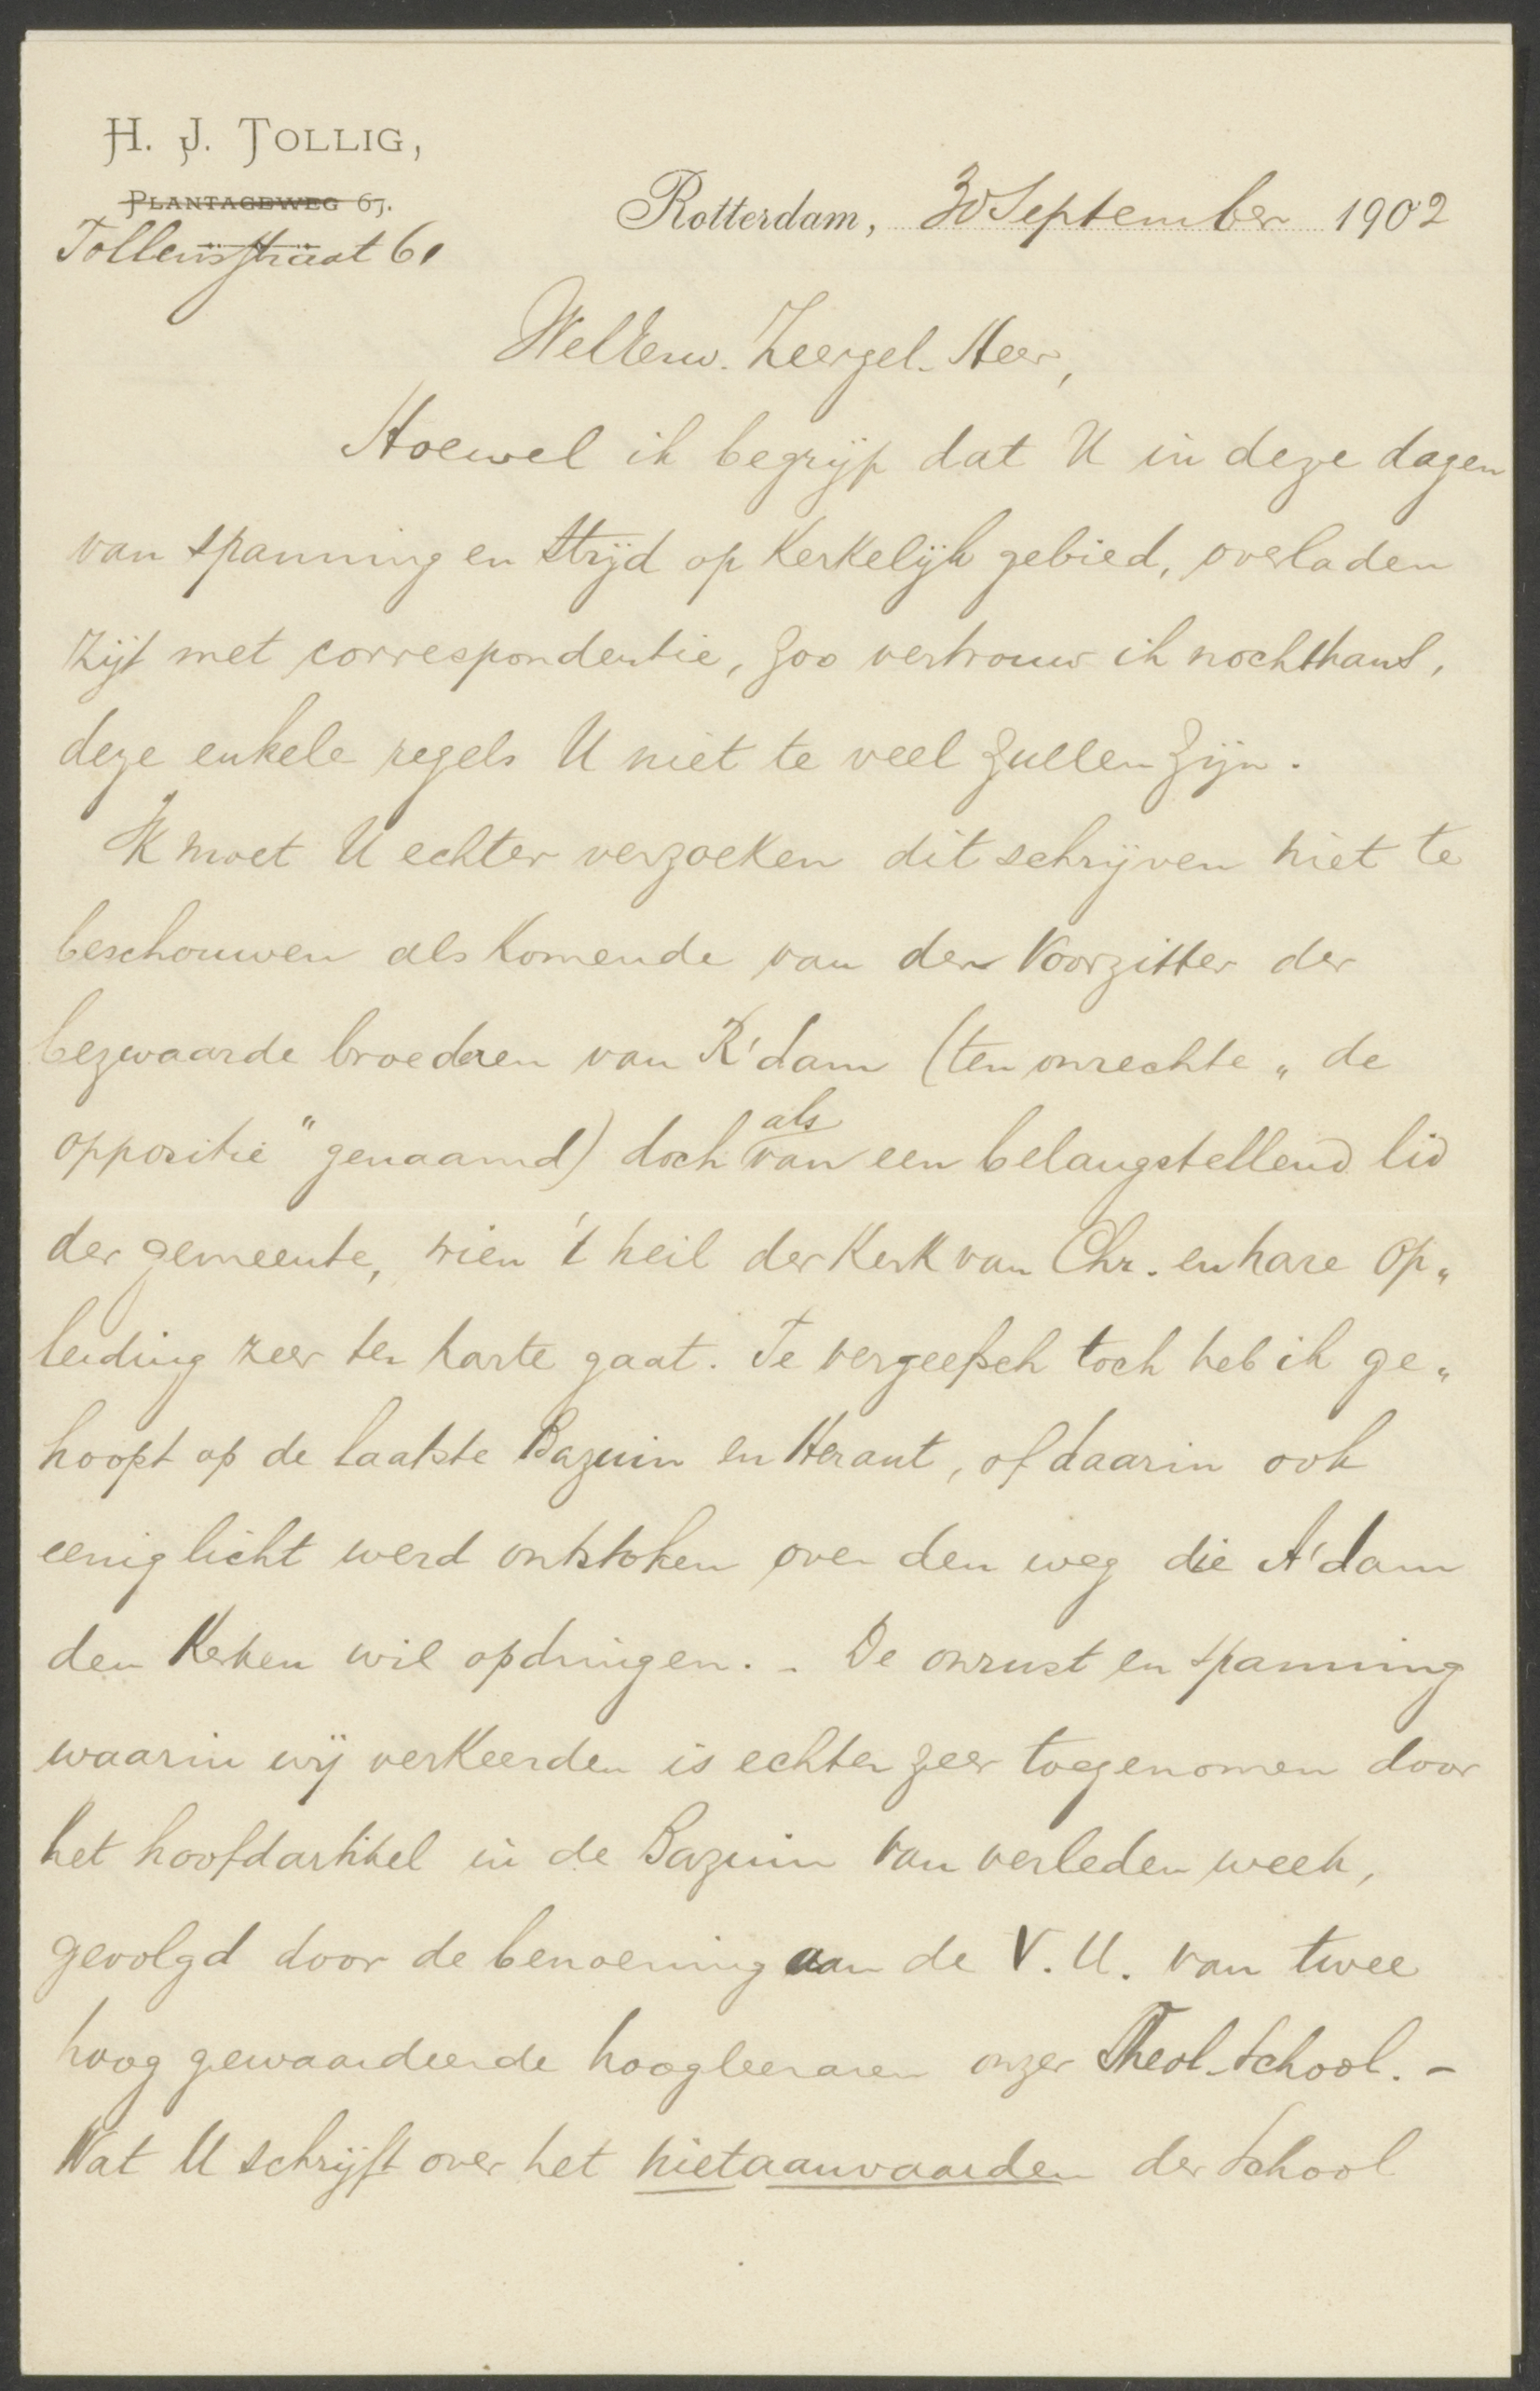 H. J. TOLLIG,
PLANTAGEWEG 67.
Tollensstraat 61
Rotterdam, 30 September 1902
WelEerw. Zeergel. Heer,
Hoewel ik begrijp dat U in deze dagen
van spanning en strijd op Kerkelijk gebied, overladen
zijt met correspondentie, zoo vertrouw ik nochthans,
deze enkele regels U niet te veel zullen zijn.
Ik moet U echter verzoeken dit schrijven niet te
beschouwen als Komende van den Voorzitter der
bezwaarde broederen van R'dam (ten onrechte „de
oppositie" genaamd) doch als van een belangstellend lid
der gemeente, wien 't heil der Kerk van Chr. en hare op„
leiding zeer ter harte gaat. Te vergeefsch toch heb ik ge„
hoopt op de laatste Bazuin en Heraut, of daarin ook
eenig licht werd ontstoken over den weg die A'dam
den Kerken wil opdringen. - De onrust en spanning
waarin wij verkeerden is echter zeer toegenomen door
het hoofdartikel in de Bazuin van verleden week,
gevolgd door de benoeming aan de V. U. van twee
hoog gewaardeerde hoogleeraren onzer Theol. School. -
Wat U schrijft over het niet aanvaarden der School